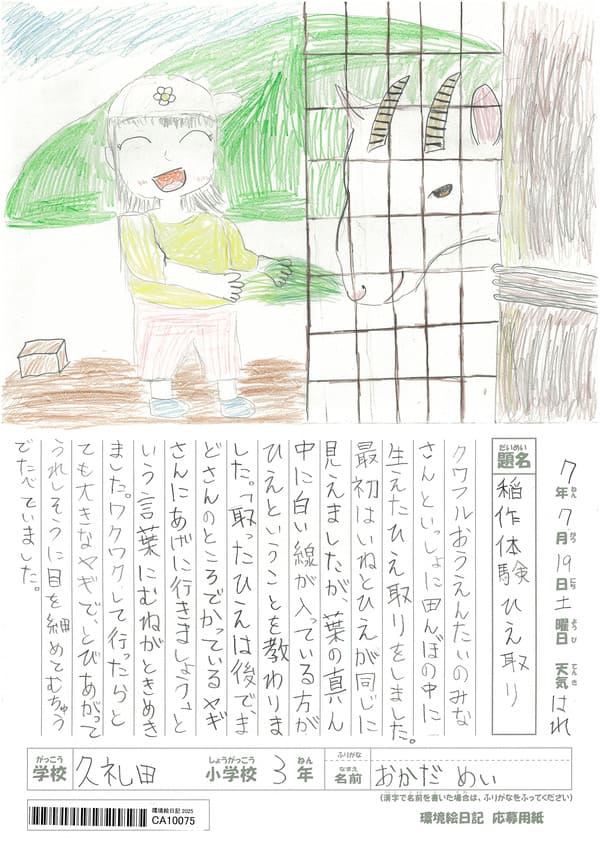 7年7月19日土曜日 天気はれ
ねん がつ にち ようび てんき
だいめい
題名 稲作体験 ひえ取り
クワフルおうえんたいのみな
さんといっしょに田んぼの中に
生えたひえ取りをしました。
最初はいねとひえが同じに
見えましたが、葉の真ん
中に白い線が入っている方が
ひえということを教わりま
した。「取ったひえは後で、ま
どさんのところでかっているヤギ
さんにあげに行きましょう」と
いう言葉にむねがときめき
ました。ワクワクして行ったらと
ても大きなヤギで、とびあがって
うれしそうに目を細めてむちゅう
でたべていました。
がっこう しょうがっこう ねん ふりがな
学校 久礼田 小学校 3年 名前 おかだ めい
なまえ
(漢字で名前を書いた場合は、ふりがなをふってください)
環境絵日記 応募用紙
環境絵日記 2025
CA10075